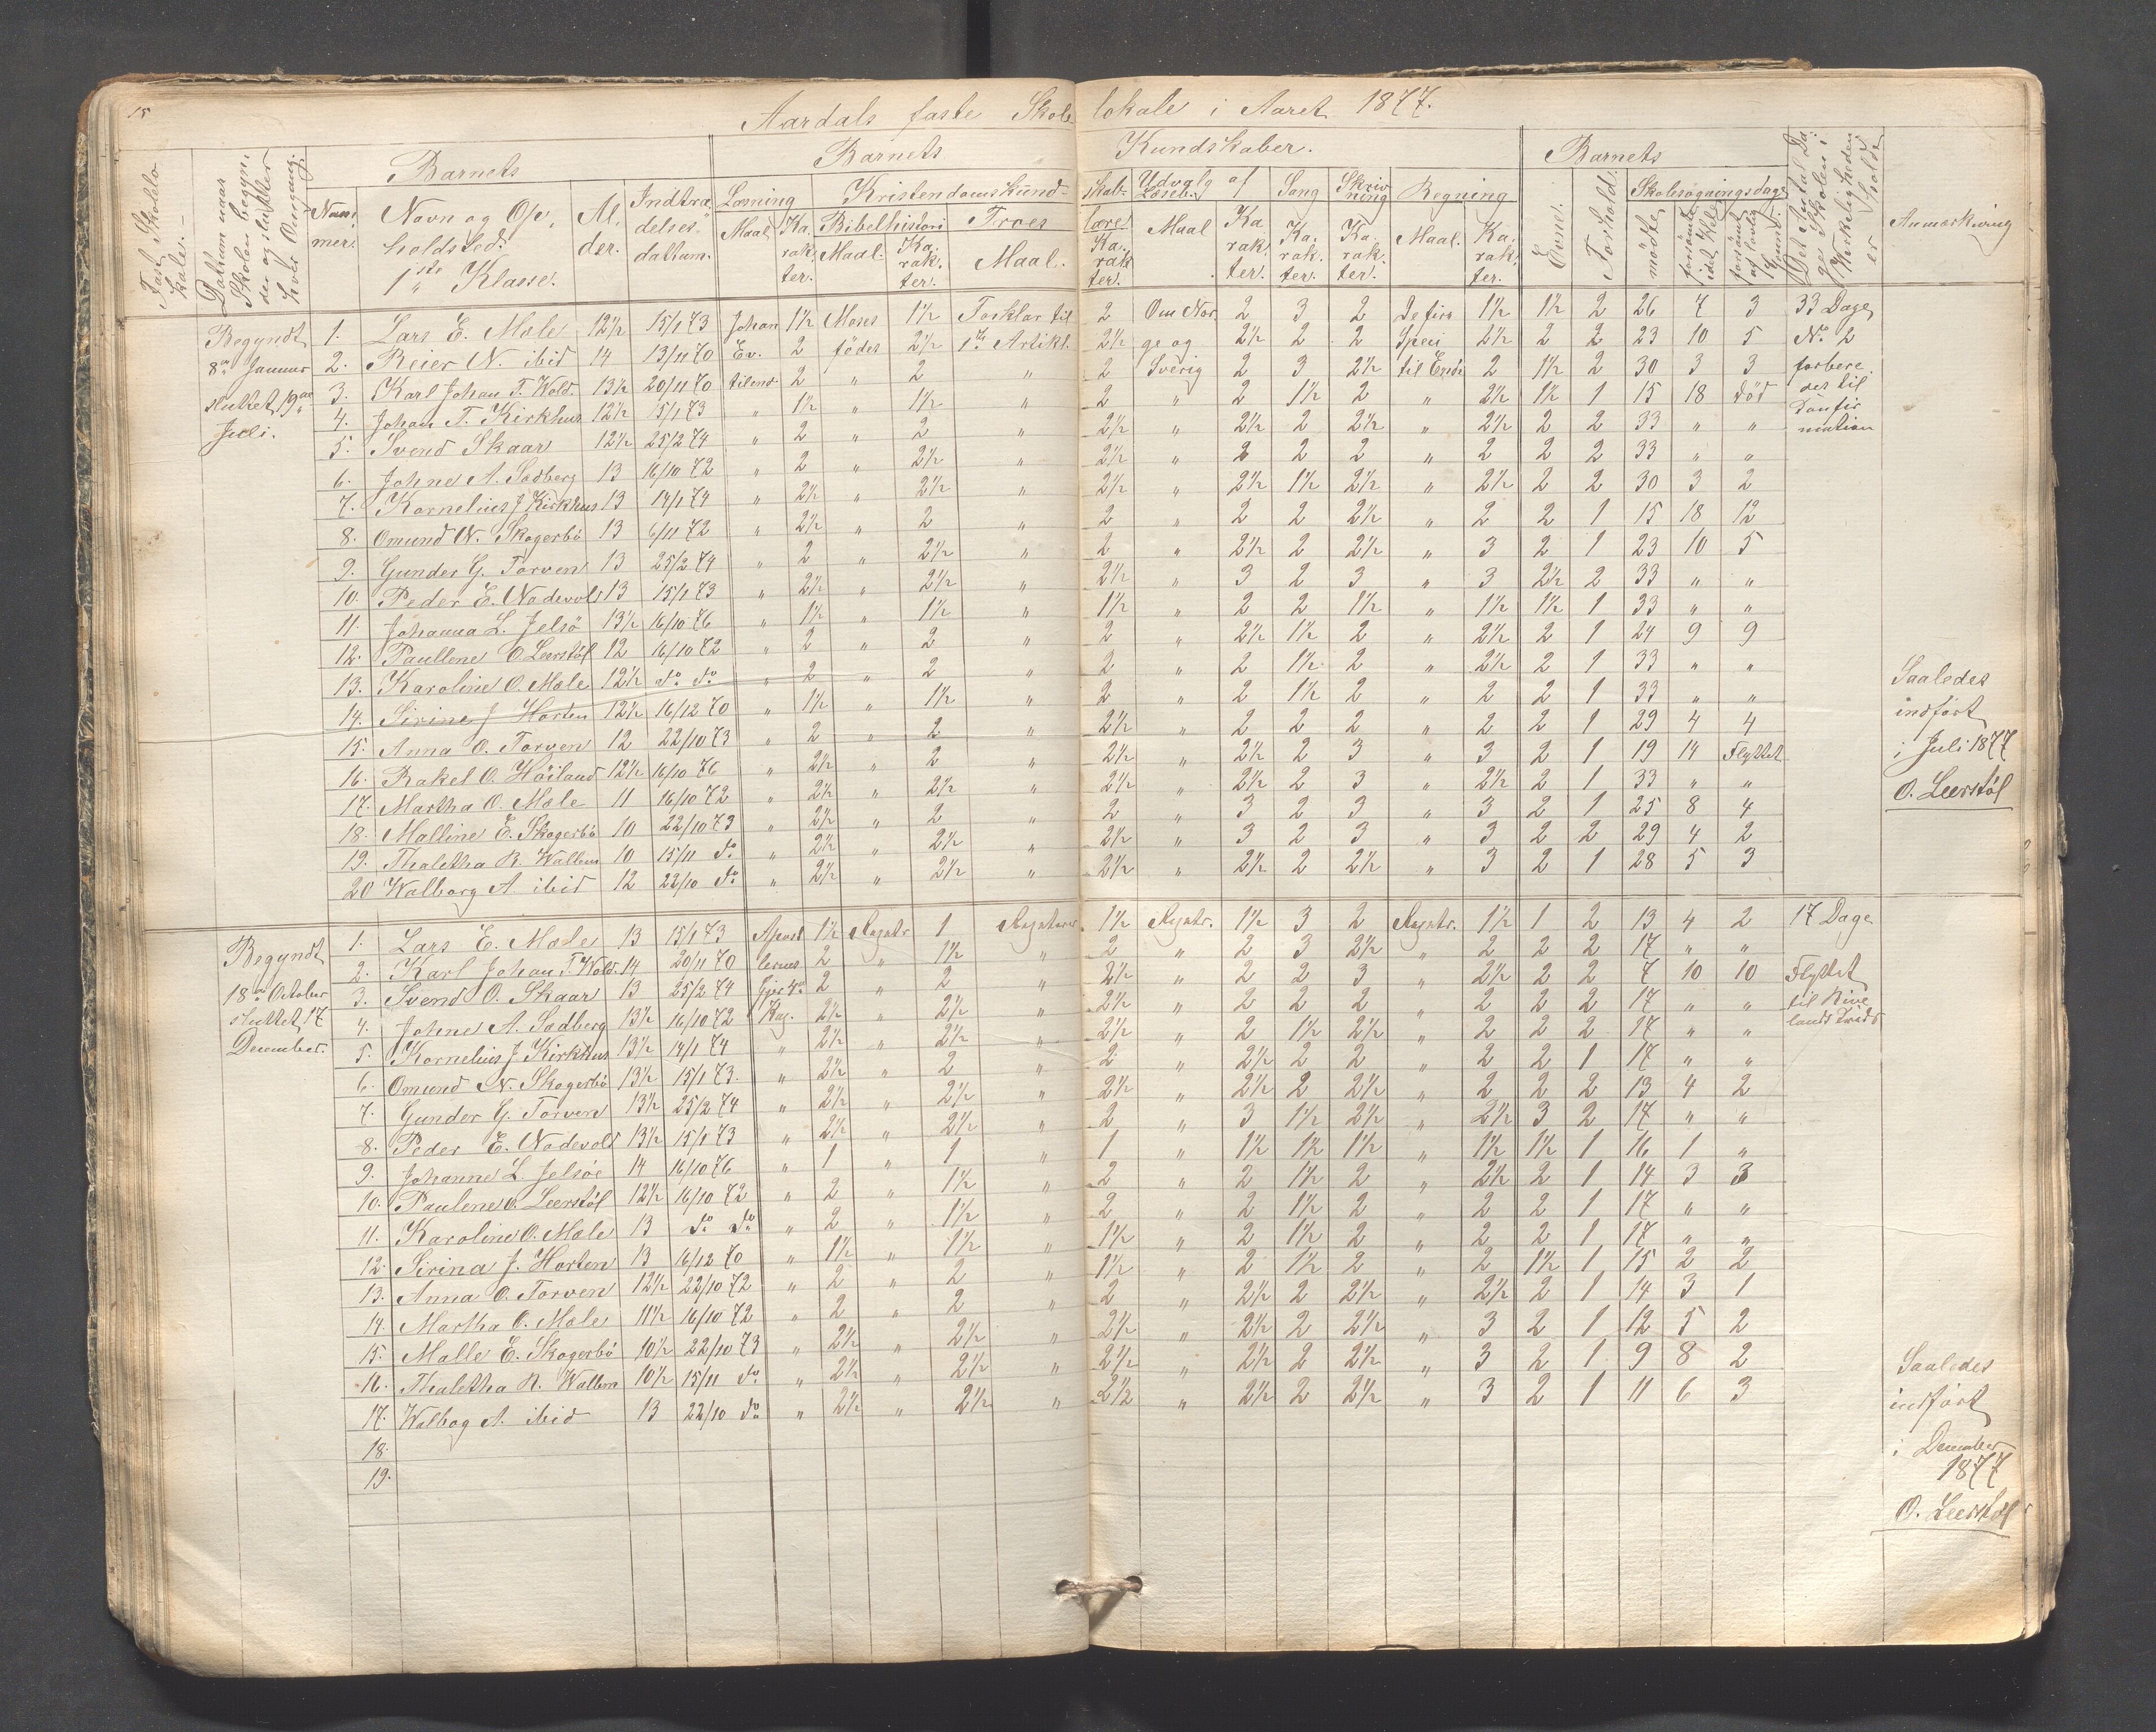 15
Aardals faste Skolelokale i Aaret 1877.
Fast Skolelokale.
Datum naar Skolen begynder og slutter hver Omgang.
Barnets
Nummer.
Navn og Opholdsted. 1ste Klasse.
Alder.
Indtrædelsesdatum.
Barnets Kundskaber.
Læsning
Maal
Karakter.
Kristendomskundskab
Bibelhistori
Maal.
Karakter.
Troeslære
Maal.
Karakter
Udvalg af Læseb.
Maal
Karakter.
Sang
Karakter.
Skrivning
Karakter.
Regning
Maal.
Karakter.
Barnets
Evne.
Forhold.
Skolesøgningsdage
mødte
forsømte i det Hele
forsømt af lovlig Grund.
Det Antal Dage Skolen i Virkeligheden er holdt
Anmærkning
Begyndt 8de Januar sluttet 19de Juli.
1. Lars E. Mæle 12½ 15/1 73 Johan 1½ Moses 1½ Forklar til 2 Om Nor 2 3 2 De fire 1½ 1½ 2 26 7 3 33 Dage
2. Reier N. ibid 14 13/11 70 Ev. 2 födes 2½ 1ste Artikl. 2½ ge og 2½ 2 2 Speci 2½ 2 2 23 10 5 No 2
3. Karl Johan T. Wold. 13½ 20/11 70 tilend. 2 " 2 " 2 Sverig 2 3 2½ til Ende 2 1½ 2 30 3 3 forbere
4. Johan T. Kirkhus 12½ 15/1 73 " 1½ " 1½ " 2 " 2 1½ 2 " 2½ 1½ 1 15 18 död des til
5. Svend Skaar 12½ 25/2 74 " 2 " 2 " 2½ " 2½ 2 2½ " 2½ 2 2 33 " "
6. Johne A. Sadberg 13 16/10 72 " 2 " 2½ " 2½ " 2 2 2 " 2 2 2 33 " "
7. Kornelius J Kirkhus 13 14/1 74 " 2½ " 2½ " 2½ " 2½ 1½ 2½ " 2½ 2 2 30 3 2
8. Omund N. Skogerbö 13 6/11 72 " 2½ " 2 " 2 " 2 2 2½ " 2 2 1 15 18 12
9. Gunder G. Torven 13 25/2 74 " 2 " 2½ " 2 " 2½ 2 2½ " 3 2 1 23 10 5
10. Peder E. Nadevold 13 15/1 73 " 2½ " 2½ " 2½ " 3 2 3 " 3 2½ 2 33 " "
11. Johanna L. Jelsö 13½ 16/10 76 " 1½ " 1½ " 1½ " 2 2 1½ " 1½ 1½ 1 33 " "
12. Paullene O. Leerstöl 12 16/10 72 " 2 " 2 " 2 " 2½ 1½ 2 " 2½ 2 1 24 9 9
13. Karoline O. Mæle 12½ do do " 2 " 2 " 2 " 2 1½ 2 " 2½ 2 1 33 " "
14. Sirine J Horten 12½ 16/12 70 " 1½ " 1½ " 2 " 2 1½ 2 " 2 2 1 33 " "
15. Anna O. Torven 12 22/10 73 " 2 " 2 " 2½ " 2 2 2 " 2 2 1 29 4 4
16. Rakel O. Höiland 12½ 16/10 76 " 2½ " 2 " 2½ " 2½ 2 3 " 3 2 1 19 14 Flyttet
17. Martha O. Mæle 11 16/10 72 " 2½ " 2½ " 2½ " 2½ 2 3 " 2½ 2 1 33 " "
18. Malline E. Skogerbö 10 22/10 73 " 2½ " 2 " 2 " 3 2 3 " 3 2 1 25 8 4
19. Thaletha R. Wallem 10 15/11 do " 2½ " 2½ " 2½ " 3 2 3 " 3 2 2 29 4 2
20 Walborg A ibid 12 22/10 do " 2½ " 2½ " 2½ " 2½ 2 2½ " 3 2 1 28 5 3
Saaledes
indført
i Juli 1877
O. Leerstöl
Begyndt 18de October sluttet 17 December.
1. Lars E. Mæle 13 15/1 73 Apost 1½ 1 1½ 1½ 3 2 1½ 1 2 13 4 2 17 Dage
2. Karl Johan T. Wold. 14 20/11 70 lernes 2 " 1½ " 2 " 2 3 2½ " 2 2 2 17 " "
3. Svend O. Skaar 13 25/2 74 2 " 2 " 2½ " 2 2 3 " 2½ 2 2 7 10 10 Flyttet
4. Johne A. Sadberg 13½ 16/10 72 Kap. 2½ " 2½ " 2½ " 2 2 2 " 2 2 2 17 " " til
5. Kornelius J Kirkhus 13½ 14/1 74 " 2½ " 2½ " 2½ " 2 1½ 2½ " 2 2 2 17 " "
6. Omund N. Skogerbö 13½ 15/1 73. " 2½ " 2 " 2 " 2½ 2 2 " 2 2 1 17 " "
7. Gunder G. Torven 13½ 25/2 74 " 2½ " 2½ " 2½ " 2½ 2 2½ " 2 2 2 13 4 2
8. Peder E. Nadevold 13½ 15/1 73 " 2½ " 2½ " 2 " 3 1½ 2½ " 2½ 3 2 17 " "
9. Johanne L. Jelsöe 14 16/10 76 " 1 " 1 " 1 " 1½ 1½ 1½ " 1½ 1½ 1 16 1 "
10. Paulene O. Leerstöl 12½ 16/10 72 " 2 " 1½ " 2 " 2 1½ 2 " 2½ 2 1 14 3 3
11. Karoline O. Mæle 13 do do " 2 " 1½ " 2 " 2 1½ 2 " 2 2 1 17 " "
12. Sirina J. Horten 13 16/12 70 " 1½ " 1½ " 1½ " 2 1½ 2 " 2 2 1 17 " "
13. Anna O. Torven 12½ 22/10 72 " 2 " 2 " 1½ " 2 1½ 2 " 2 1½ 1 15 2 2
14. Martha O. Mæle 11½ 16/10 72 " 2 " 2 " 2 " 2½ 2 2½ " 2½ 2 1 14 3 1
15. Malle E. Skogerbö 10½ 22/10 73 " 2½ " 2½ " 2½ " 2½ 2 2½ " 3 2 1 12 5 2
16. Thaletha R. Wallem 10½ 15/11 do " 2½ " 2½ " 2½ " 2½ 2 2½ " 3 2 1 9 8 2
17. Walbog A. ibid 13 22/10 do " 2½ " 2½ " 2½ " 2½ 2 2½ " 3 2 1 11 6 3
18.
19.
Saaledes
indført
i December
1877
O. Leerstöl